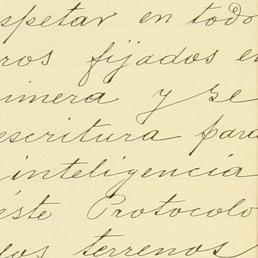 spetar en todo
ros fijados en
imera y se
escritura para
inteligencia
éste Protocolo
los terrenos